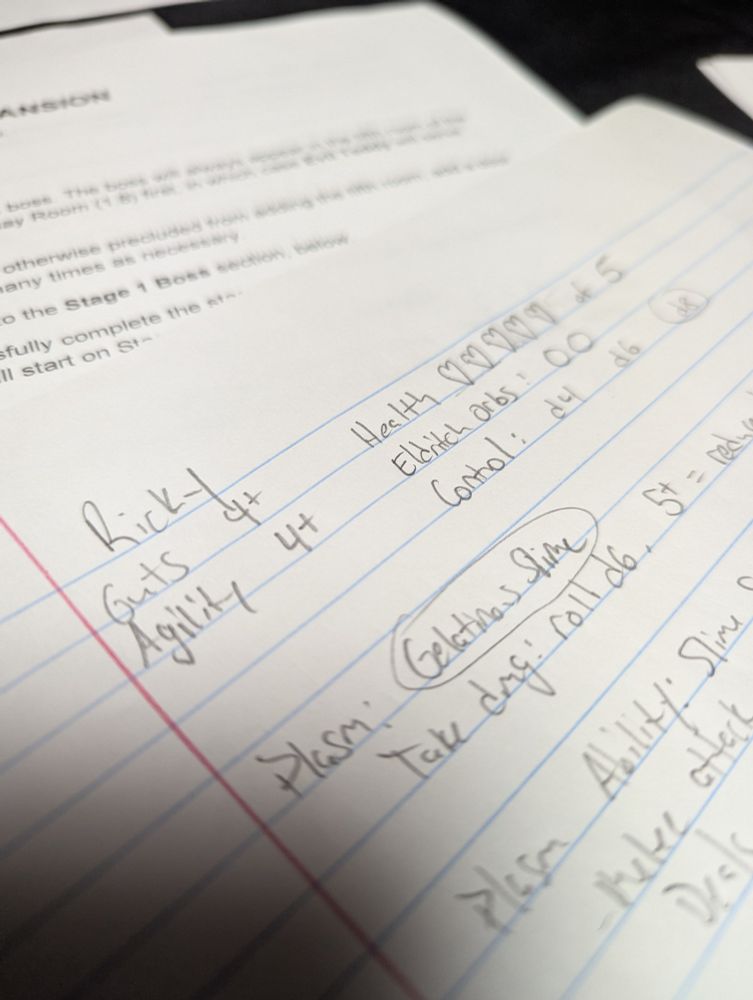 ANSION
boss. The boss will always appear in the fifth room of the
ay Room (1.8) first, in which case Evil Teddy will
otherwise precluded from adding the fifth room, add a
any times as necessary.
o the Stage 1 Boss section, below.
sfully complete the
ll start on
Rick-1
Guts 4+
Agility 4+
Health ♡♡♡♡♡ of 5
Eldritch orbs: OO
Control: d4 d6 d8
Plasm: Gelatinous Slime
Take dmg: roll d6. 5+ =
Plasm Ability: Slime
- Makes attack
Deals